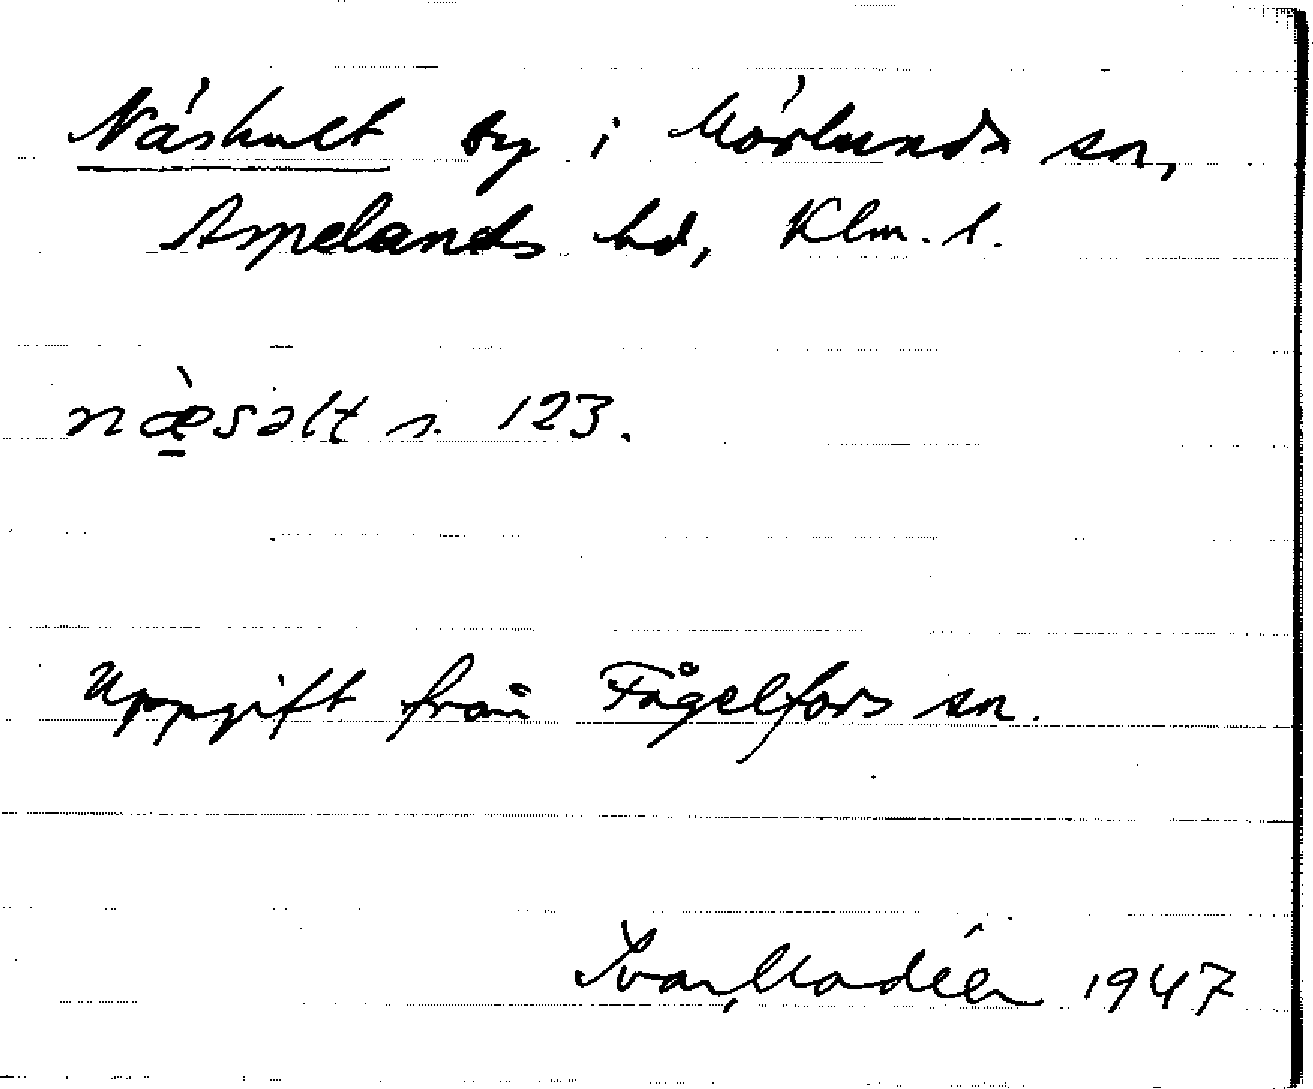 Näshult by i Mörlunda sn,
Aspelands hd, Klm. l.
næ̀səlt s. 123.
Uppgift från Fågelfors sn.
Ivar Modéer 1947